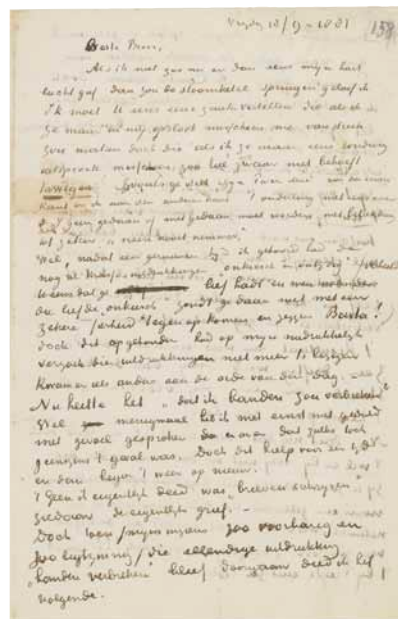 Vrijdag 18/9-1881
Beste Theo,
Als ik niet zoo nu en dan eens mijn hart
lucht gaf dan zou de stoomketel springen geloof ik
Ik moet U eens eene zaak vertellen die als ik
ze maar in mij opsloot misschien me van streek
zou maken doch die als ik ze maar eens rondweg
uitspreek misschien zoo heel zwaar niet behoeft
te wegen
Zooals ge weet zijn Pa en Moe aan den eenen
kant en ik aan den anderen kant 't onderling niet eens over
't geen gedaan of niet gedaan moet worden met betrekking
tot zeker "neen nooit nimmer".
Wel, nadat een geruimen tijd ik gehoord had
nog al uitdrukkingen "onkiesch en ontijdig" (verbeeld
U eens dat ge lief hadt en men
die liefde onkiesch zoudt ge daar niet met een
zekere fierheid tegen op komen en zeggen Basta!)
doch dit opgehouden had op mijn nadrukkelijk
verzoek die uitdrukkingen niet meer te bezigen
kwam er iets anders aan de orde van den dag
Nu heette het "dat ik banden zou verbreken"
Wel menigmaal heb ik met ernst met geduld
met gevoel gesproken en dat zulks toch
geenszins 't geval was. Doch dat hielp voor een tijd
en dan begon 't weer op nieuw.
't Geen ik eigentlijk deed was "brieven schrijven"
ziedaar de eigentlijke grief. –
Doch toen men zoo voorbarig en
zoo ligtzinnig die ellendige uitdrukking
"banden verbreken" bleef doorgaan deed ik het
volgende.